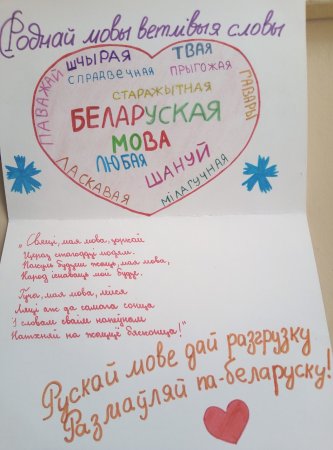 Роднай мовы ветлівыя словы
ПАВАЖАЙ
ШЧЫРАЯ
ТВАЯ
СПРАДВЕЧНАЯ
ПРЫГОЖАЯ
ГАВАРЫ
СТАРАЖЫТНАЯ
БЕЛАРУСКАЯ
МОВА
ЛЮБАЯ
ШАНУЙ
ЛАСКАВАЯ
МІЛАГУЧНАЯ
„Свяці, мая мова, зоркай
Цераз стагоддзі людзям.
Пакуль будзеш жыць, мая мова,
Народ спяваць мой будзе.
Гучы, мая мова, лейся
Ляці аж да самага сонца
І словам сваім напеўным
Натхняй на жыццё бясконца!"
Рускай мове дай разгрузку
Размаўляй па-беларуску!